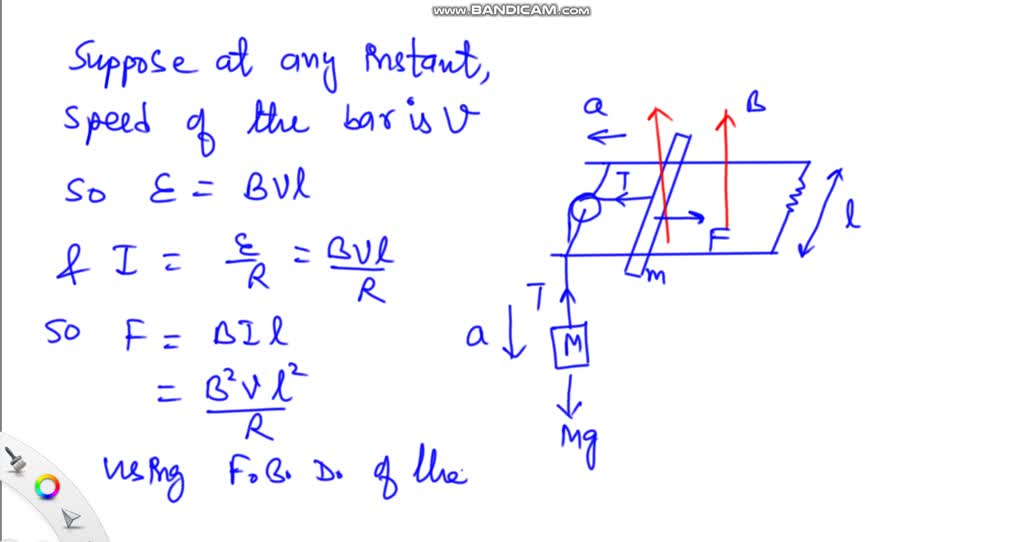 www.BANDICAM.com
Suppose at any instant,
speed of the bar is v
so ε = Bvl
& I = ε/R = Bvl/R
so F = BIl
= B²vl²/R
using F.B.D. of the
a
B
T
F
l
m
T
a
M
Mg